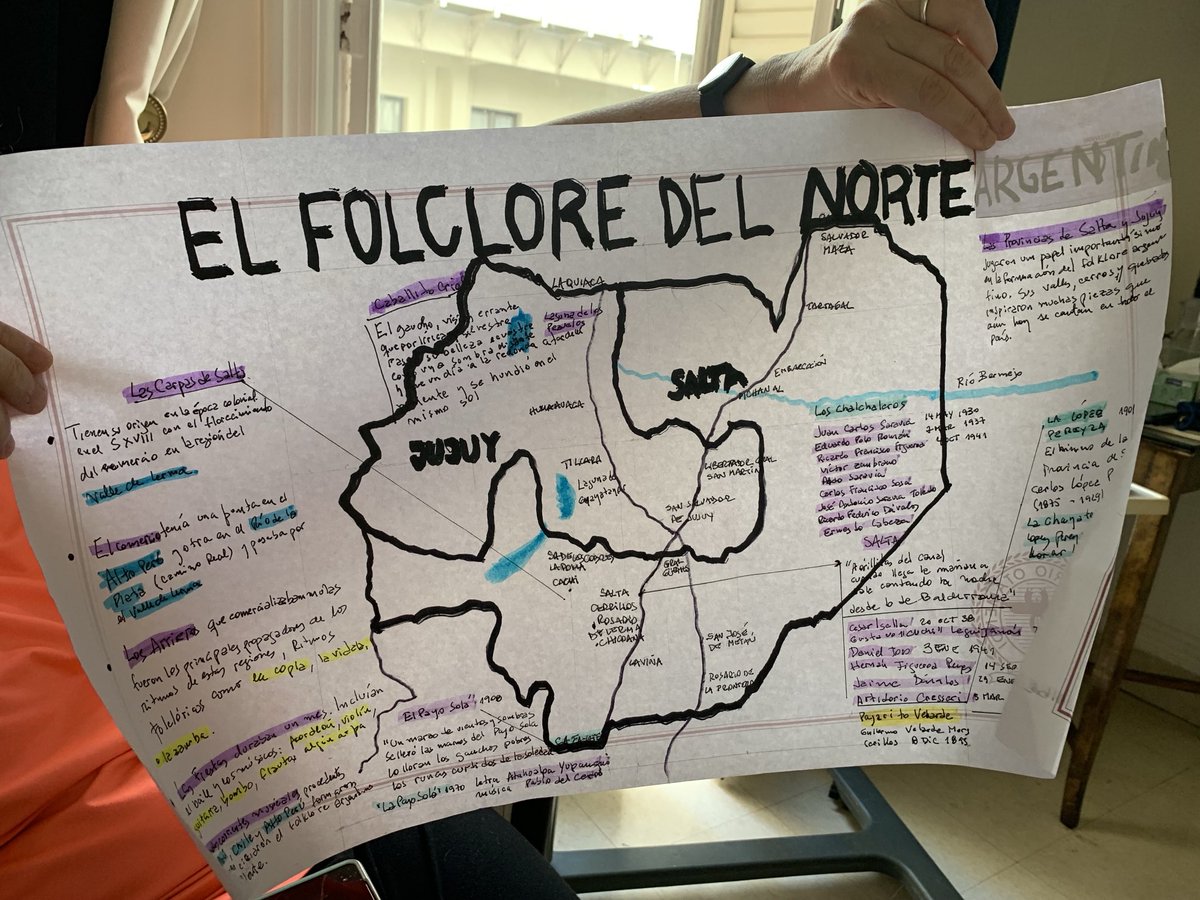 EL FOLCLORE DEL NORTE
ARGENTIN
Las Provincias de Salta y Jujuy
jugaron un papel importantísimo
en la formación del Folklore argen
tino. Sus valles, cerros y quebradas
inspiraron muchas piezas que
aún hoy se cantan en todo el
país.
Caballito Criollo
El gaucho, visión errante
belleza
sombra
la redonda
y se hundió en el
mismo sol
LA QUIACA
Laguna de los
Pozuelos
SALVADOR
MAZA
TARTAGAL
EMBARCACIÓN
PICHANAL
Río Bermejo
SALTA
JUJUY
HUMAHUACA
TILCARA
Laguna de
Guayatayoc
LIBERTADOR GRAL
SAN MARTÍN
SAN SALVADOR
DE JUJUY
LA POMA
CACHI
GRAL
GÜEMES
SALTA
CERRILLOS
ROSARIO
DE LERMA
CHICOANA
LA VIÑA
SAN JOSÉ
DE METÁN
ROSARIO DE
LA FRONTERA
CAFAYATE
Las Carpas de Salta
Tienen su origen en la época colonial
en el S XVIII con el florecimiento
del comercio en la región del
Valle de Lerma
El comercio tenía una punta en el
Alto Perú y otra en el Río de la
Plata (camino Real) y pasaba por
el Valle de Lerma
Los Arrieros que comercializaban mulas
fueron los principales propagadores de los
ritmos de estas regiones, Ritmos
folclóricos como la copla, la vidala,
la zamba.
Las fiestas duraban un mes. Incluían
baile y los músicos: acordeón, violín,
guitarra, bombo, flauta, algún arpa.
musicales procedentes
Chile y Alto Perú formaron
el folklore argentino
"El Payo Solá" 1908
"Un marzo de vientos y sombras
selleró las manos del Payo Solá
lo lloran los gauchos pobres
los runas curtidos de la soledad
"La Payo Solá" 1970 letra Atahualpa Yupanqui
música Pablo del Cerro
Los Chalchaleros
Juan Carlos Saravia 14 MAY 1930
Eduardo Polo Román 2 MAR 1937
Ricardo Francisco Figueroa OCT 1941
Victor Zambrano
Aldo Saravia
Carlos Francisco Sosa
José Antonio Saravia Toledo
Ricardo Federico Dávalos
Ernesto Cabeza
SALTA
"A orillitas del canal
cuando llega la mañana
sale cantando la noche
desde lo de Balderrama"
Cesar Isella 20 OCT 38
Gustavo "Cuchi" Leguizamón
Daniel Toro 3 ENE 1941
Hernán Figueroa Reyes
Jaime Dávalos 29 ENE
Artidorio Cresseri 8 MAR
Pajarito Velarde
Guillermo Velarde Mors
Cerrillos 8 DIC 1895
LA LÓPEZ
PEREYRA 1901
El himno de la
Provincia de
Carlos López P
(1875 - 1949)
La Chayate